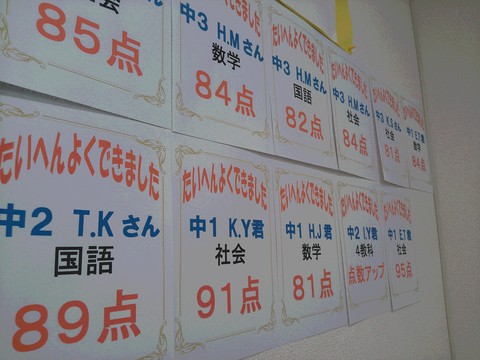 社会
85点
たいへんよくできました
中3 H.Mさん
数学
84点
たいへんよくできました
中3 H.Mさん
国語
82点
たいへんよくできました
中3 H.Mさん
社会
84点
たいへんよくできました
中3 K.Sさん
社会
81点
たいへんよくできました
中1 E.T君
数学
84点
たいへんよくできました
中2 T.Kさん
国語
89点
たいへんよくできました
中1 K.Y君
社会
91点
たいへんよくできました
中1 H.J君
数学
81点
たいへんよくできました
中2 I.Y君
4教科
点数アップ
たいへんよくできました
中1 E.T君
社会
95点